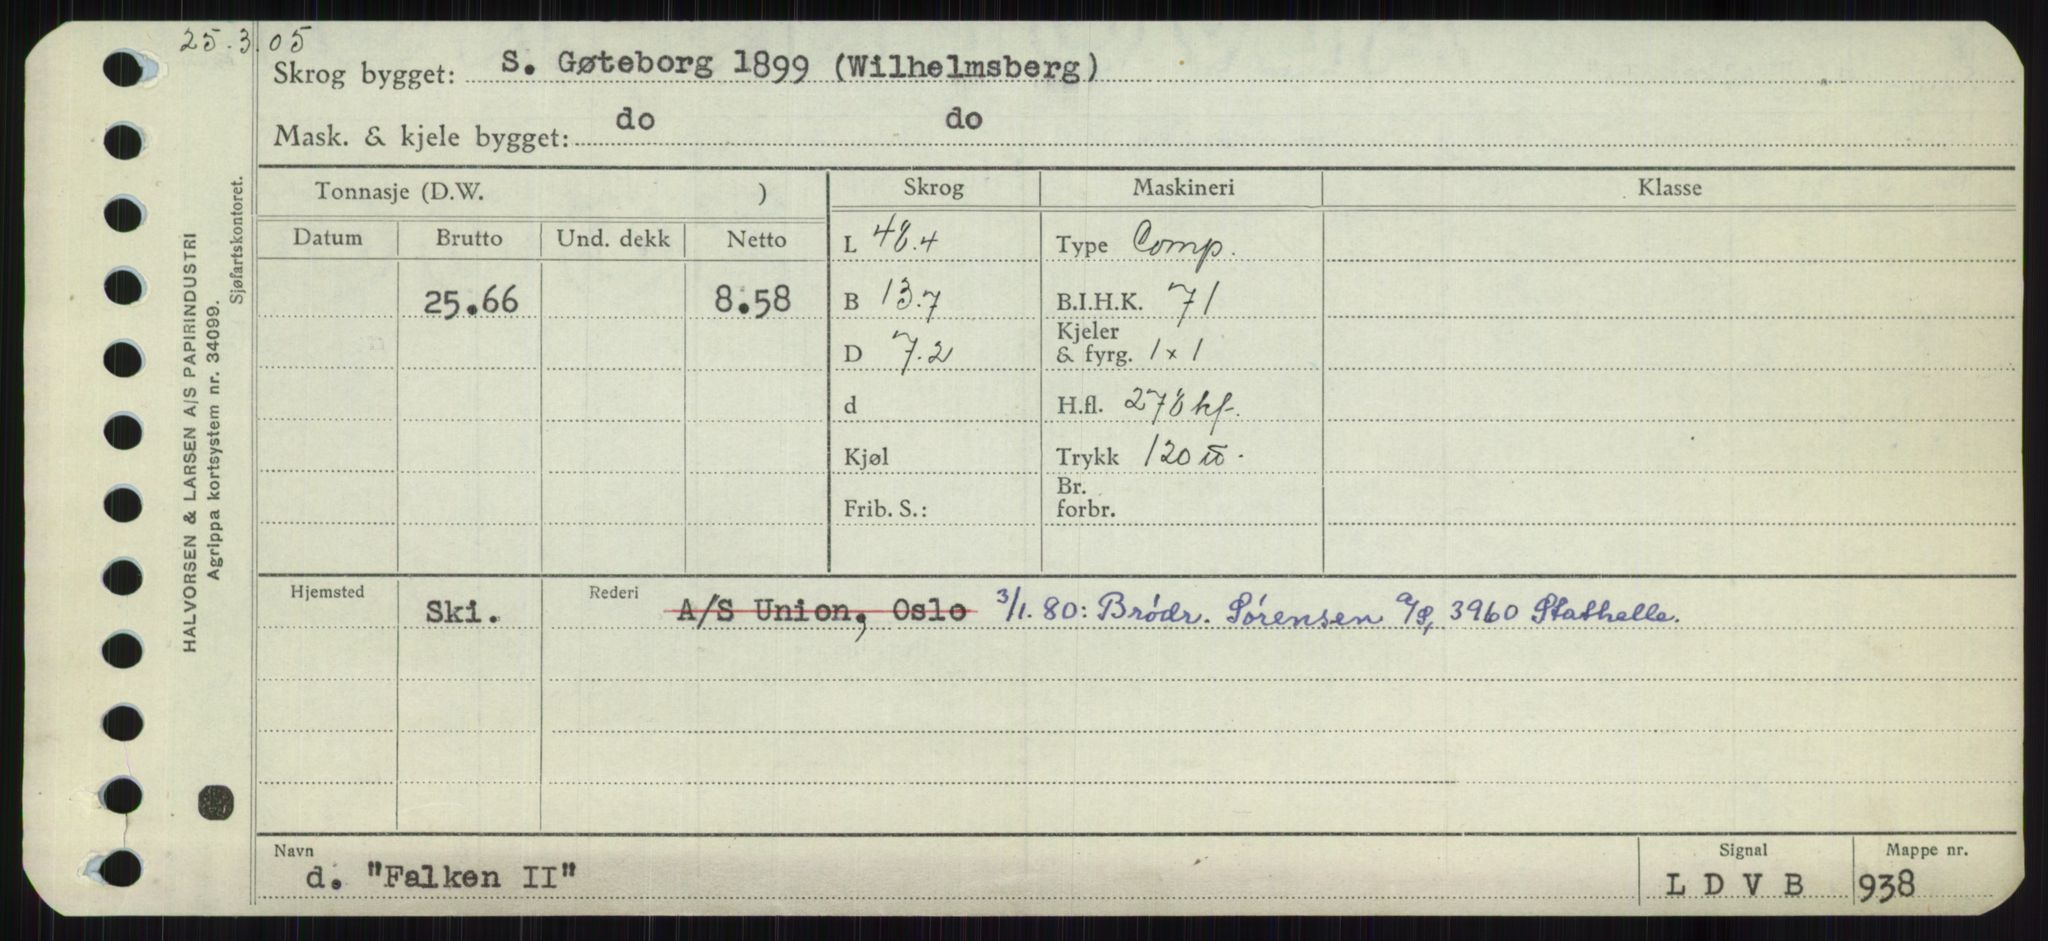 25.3.05
Skrog bygget: S. Gøteborg 1899 (Wilhelmsberg)
Mask. & kjele bygget: do do
HALVORSEN & LARSEN A/S PAPIRINDUSTRI
Agrippa kortsystem nr. 34099.
Sjøfartskontoret.
Tonnasje (D.W. ) Skrog Maskineri Klasse
Datum Brutto Und. dekk Netto L 48.4 Type Comp.
25.66 8.58 B 13.7 B.I.H.K. 71
D 7.2 Kjeler & fyrg. 1 x 1
d H.fl. 278 kf.
Kjøl Trykk 120 ℔.
Frib. S.: Br. forbr.
Hjemsted Ski. Rederi A/S Union, Oslo 3/1.80: Brödr. Sörensen a/s, 3960 Stathelle.
Navn Signal Mappe nr.
d. "Falken II" L D V B 938